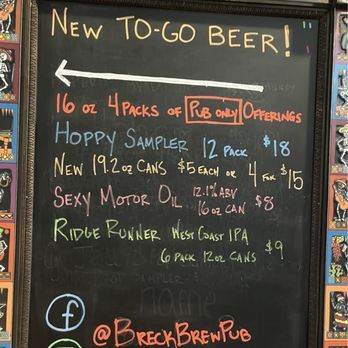 NEW TO-GO BEER!
16 OZ 4 PACKS OF PUB ONLY OFFERINGS
HOPPY SAMPLER 12 PACK $18
NEW 19.2 OZ CANS $5 EACH OR 4 FOR $15
SEXY MOTOR OIL 12.1% ABV 16 OZ CAN $8
RIDGE RUNNER WEST COAST IPA
6 PACK 12 OZ CANS $9
f @BRECKBREWPUB